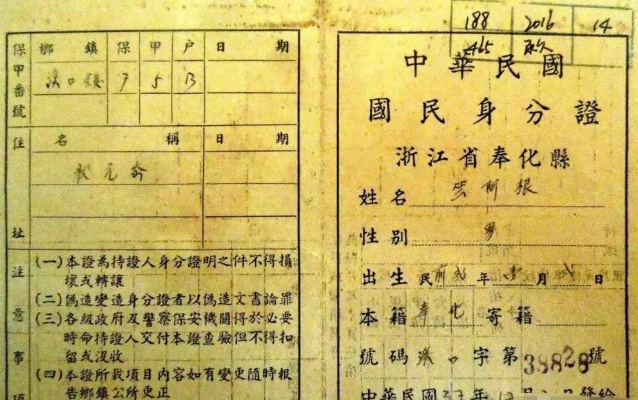 保甲番號
鄉鎮 保 甲 戶 日 期
溪口鎮 7 5 13
住址
名 稱 日 期
狀元岙
注意事項
(一)本證為持證人身分證明之件不得損
壞或轉讓
(二)偽造變造身分證者以偽造文書論罪
(三)各級政府及警察保安機關得於必要
時命持證人交付本證查驗但不得扣
留或沒收
(四)本證所栽項目內容如有變更隨時報
告鄉鎮公所更正
188 2016 14
465
中華民國
國民身分證
浙江省奉化縣
姓名 阿根
性別 男
出生民前 年 月 日
本籍 奉化 寄籍
號碼溪口字第38828號
中華民國37年12月 日發給